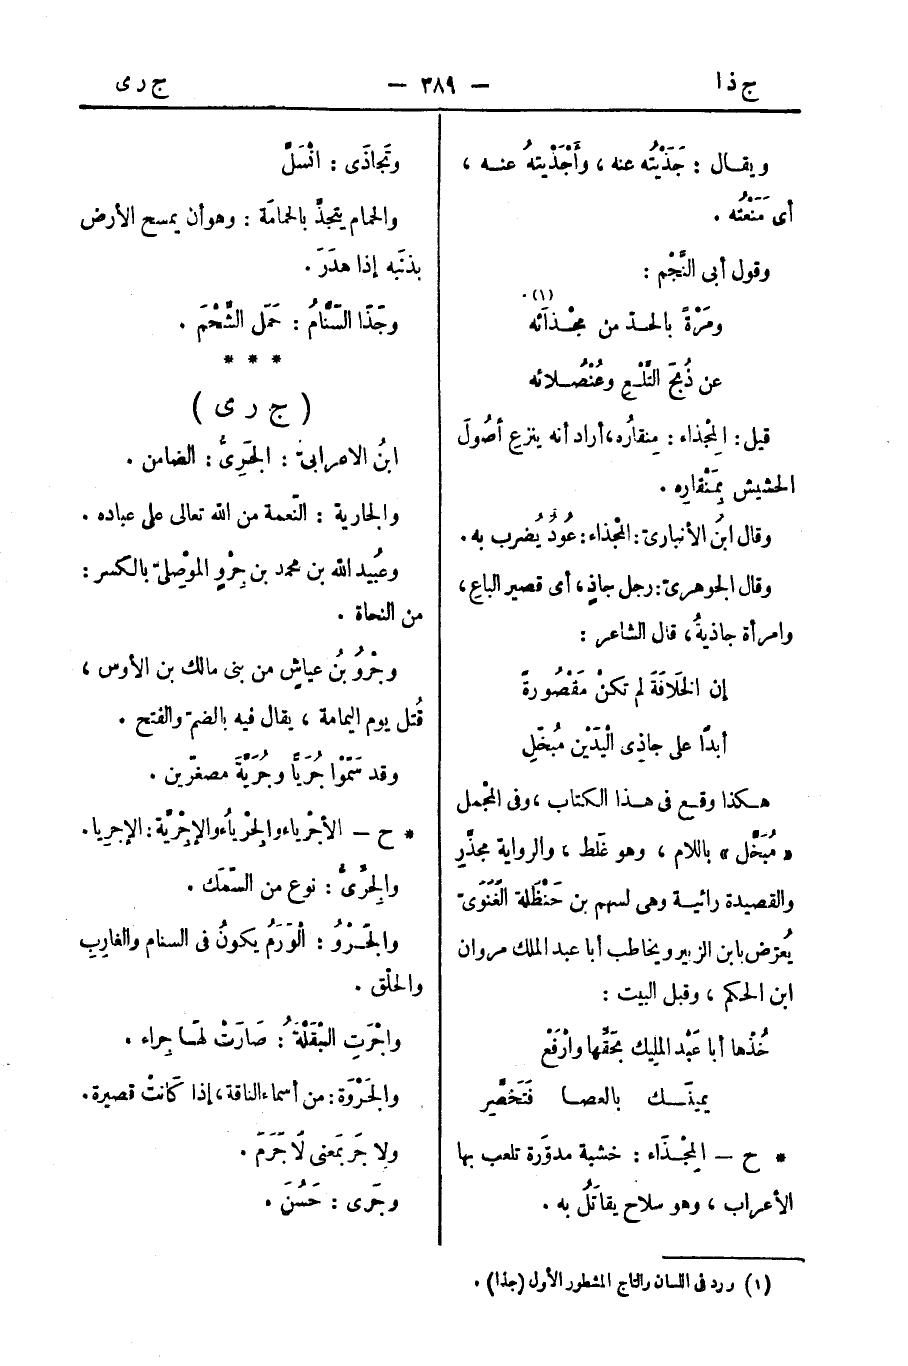 ج ذا
— ٣٨٩ —
ج رى
ويقال : جَذَيْتُه عنه ، وأَجْذَيتهُ عنه ،
أى مَنَعْتُه .
وقول أبى النَّجْم :
ومَرْةً بالحد من مِجْذَائه (١)
عن ذُبَحِ التَّلْعِ وعُنْصُلائه
قيل : المِجْذاء : مِنقارُه، أراد أنه ينزع أصُولَ
الحشيش بِمِنْقارِه .
وقال ابنُ الأنبارىّ : المِجْذاء : عُودٌ يُضرب به .
وقال الجوهرىّ : رجل جاذٍ، أى قصير الباع ،
وامرأة جاذيةُ، قال الشاعر :
إن الخلَافَةَ لم تكنْ مَقْصُورةً
أبدًا على جاذِى الْيَدَيْن مُبَخّلِ
هكذا وقع فى هذا الكتاب ، وفى المجْمل
« مُبَخَّل » باللام ، وهو غَلط ، والرواية مجذَّرِ
والقصيدة رائية وهى لسهم بن حَنْظَلة الغَنَوىّ
يُعرّض بابن الزبير ويخاطب أبا عبد الملك مروان
ابن الحكم ، وقبل البيت :
خُذْها أبا عَبْد المليك بحَقّها وارْفَعْ
يمينَك بالعصا فَتَخَصَّرِ
* ح — المِجْذَاء : خشبة مدوّرة تلعب بها
الأعراب ، وهو سلاح يقاتَلُ به .
وتَجاذَى : انْسَلَّ
والحمام يتجذَّ بالحمامَة : وهو أن يمسح الأرض
بذنَبه إذا هدَرَ .
وجَذَا السَّنَامُ : حَمَل الشَّحْمَ .
* * *
( ج رى )
ابنُ الاعرابىّ : الجَرِىُّ : الضامن .
والجارية : النّعمة من الله تعالى على عباده .
وعُبيد الله بن محمد بن جِرْوٍ الموْصِلىّ بالكسر :
من النحاة .
وجُرْوُ بنُ عياشٍ من بنى مالك بن الأوس ،
قُتل يوم اليمامة ، يقال فيه بالضمّ والفتح .
وقد سَمَّوْا جُرَيًّا وجُرَيَّةَ مصغّرين .
* ح — الأجْرِياء والجِرْياءُ والإجْرِيَّة : الإجرِيا.
والجِرِّىُّ : نوع من السَّمَك .
والجَرْوُ : الْوَرَمُ يكونُ فى السنام والغارِبِ
والحلْق .
واجْرَتِ البَقْلَةُ : صَارَتْ لهَا جِراء .
والجَرْوَة : من أسماء الناقة ، إذا كَانَتْ قصيرة .
ولا جَرَ بمَعنى لَا جَرَمَ .
وجَرى : حَسُنَ .
(١) ورد فى اللسان والتاج المشطور الأول (جذا) .